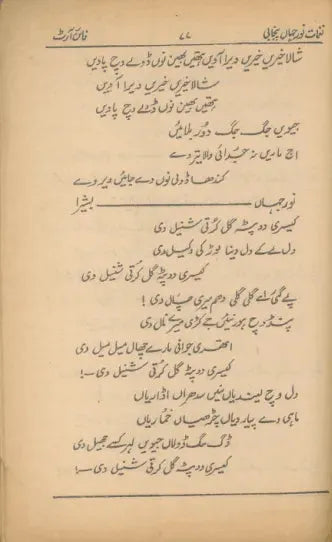 نغمات نور جہاں پنجابی ۷۷ فائن آرٹ
شالا خیریں خیریں ویرا آویں ہتھیں بھین نوں ڈولے وچ پاویں
شالا خیریں خیریں ویرا آویں
ہتھیں بھین نوں ڈولے وچ پاویں
جیویں جگ جگ دور بلائیں
اج مار نہ جدائی والا تیر وے
کندھا ڈولی نوں دے جائیں ویر وے
نور جہاں ——— بشیرا
کیسری دوپٹہ گل کرتی شنیل دی
دل لے کے دل دینا لوڑ کی وکیل دی
کیسری دوپٹہ گل کرتی شنیل دی
پے گئی اے گلی گلی دھم میری چال دی !
پنڈ وچ ہور نئیں جے کڑی میرے نال دی
اتھری جوانی مارے چھال میل میل دی
کیسری دوپٹہ گل کرتی شنیل دی ۔!
دل وچ لیندیاں نیں سدھراں اڈاریاں
ماہی دے پیار دیاں چڑھیاں خماریاں
ڈگ مگ ڈولاں جیویں لہر کسے جھیل دی
کیسری دوپٹہ گل کرتی شنیل دی ۔!